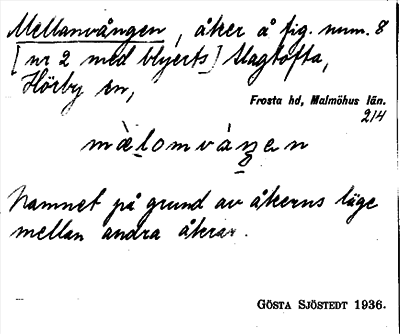 Mellanvången, åker å fig. num. 8
[nr 2 med blyerts] Slagtofta,
Hörby sn,
Frosta hd, Malmöhus län.
214
mὰlomvὰŋen
Namnet på grund av åkerns läge
mellan andra åkrar.
GÖSTA SJÖSTEDT 1936.